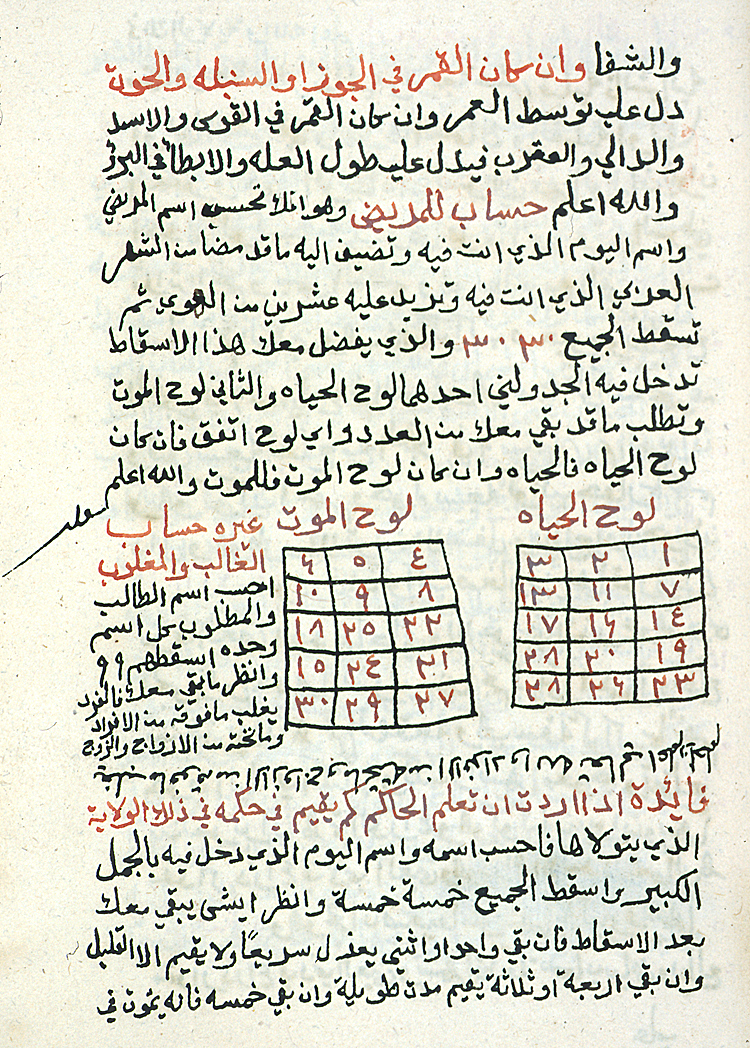 والشفا وان كان القمر في الجوزا والسنبله والحوت
دل علي توسط العمر وان كان القمر في القوس والاسد
والدالي والعقرب فيدل علي طول العله والابطا في البرؤ
والله اعلم حساب للمريض وهو انك تحسب اسم المريض
واسم اليوم الذي انت فيه وتضيف اليه ما قد مضا من الشهر
العربي الذي انت فيه وتزيد عليه عشرين من الهوي ثم
تسقط الجميع ٣٠ ٣٠ والذي يفضل معك هذا الاسقاط
تدخل فيه الجدولين احدهما لوح الحياه والثاني لوح الموت
وتطلب ما قد بقي معك من العدد واي لوح اتفق فان كان
لوح الحياه فالحياه وان كان لوح الموت فللموت والله اعلم
لوح الحياه
١ ٢ ٣
٧ ١١ ١٣
١٤ ١٦ ١٧
١٩ ٢٠ ٢٨
٢٣ ٢٦ ٢٨
لوح الموت
٤ ٥ ٦
٨ ٩ ١٠
٢٢ ٢٥ ١٨
٢١ ٢٤ ١٥
٢٧ ٢٩ ٣٠
غيره حساب
الغالب والمغلوب
احسب اسم الطالب
والمطلوب كل اسم
وحده اسقطهم ٩ ٩
وانظر ما بقي معك فالفرد
يغلب ما فوقه من الافراد
وما تحته من الازواج والزوج
فايدة اذا اردت ان تعلم الحاكم كم يقيم في حكمه في ذلك الولاية
الذي يتولاها فاحسب اسمه واسم اليوم الذي دخل فيه بالجمل
الكبير واسقط الجميع خمسة خمسة وانظر ايش يبقي معك
بعد الاسقاط فان بقي واحد او اثنين يعزل سريعا ولا يقيم الا القليل
وان بقي اربعة او ثلاثة يقيم مدة طويلة وان بقي خمسه فانه يموت في